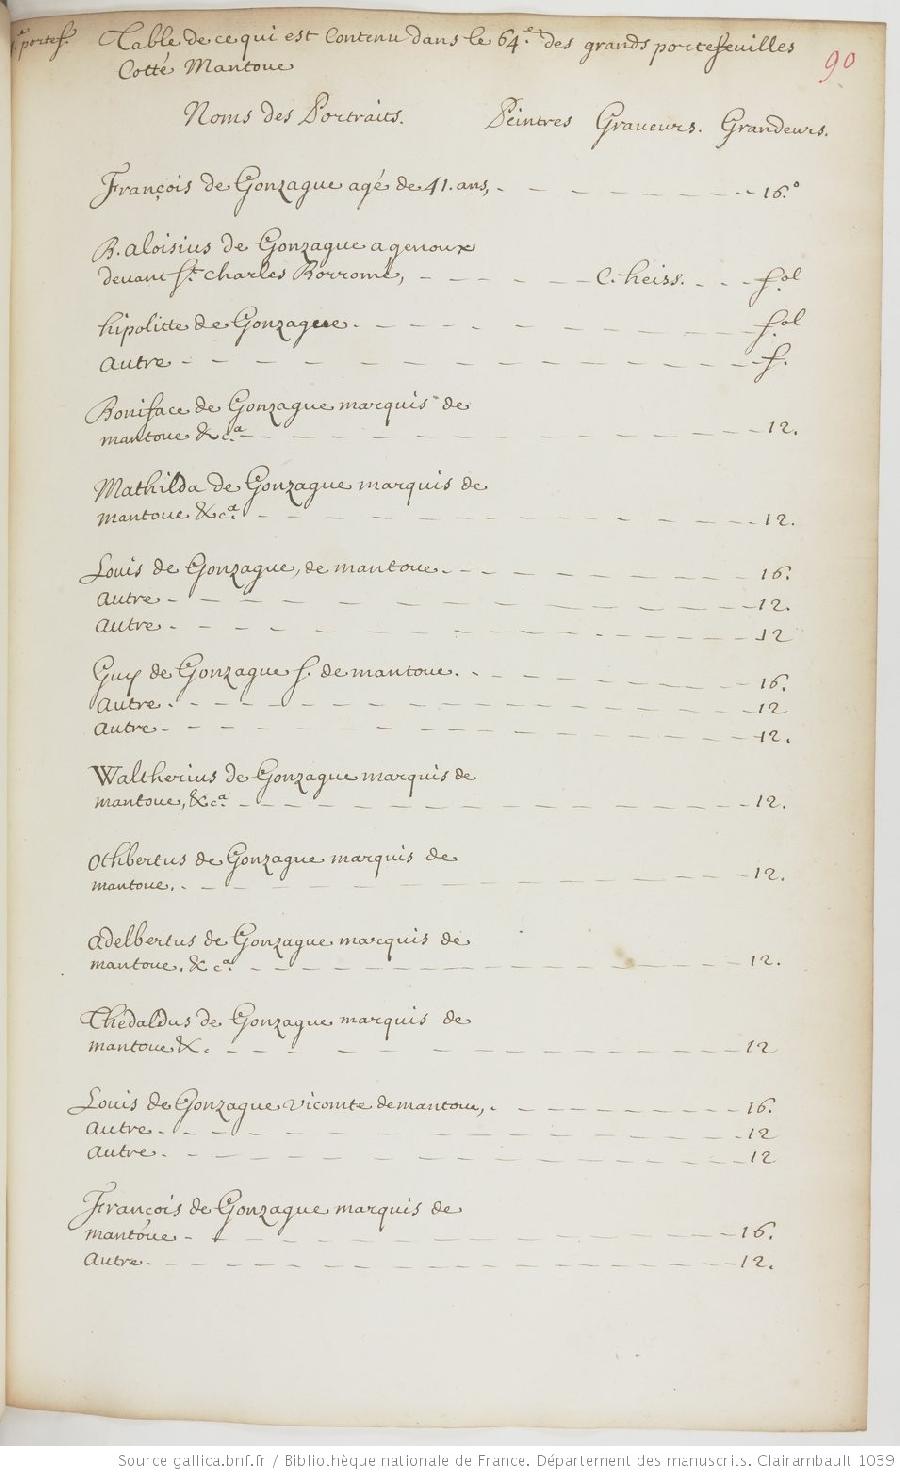 portef.
Table de ce qui est Contenu dans le 64.e des grands portefeuilles
Cotté Mantoue
90
Noms des Portraits. Peintres Graueurs. Grandeurs.
François de Gonzague agé de 41. ans, - - - - - - 16.o
B. aloisius de Gonzague a genoux
deuant St. charles Borromé, - - - - C. heiss. - - - fol
hipolitte de Gonzague. - - - - - - fol
autre - - - - - - f.
Boniface de Gonzague marquis de
mantoue &ca - - - - - - 12.
Mathilda de Gonzague marquis de
mantoue &ca. - - - - - - 12.
Louis de Gonzague, de mantoue. - - - - - - 16.
autre - - - - - - 12.
autre. - - - - - - 12
Guy de Gonzague f. de mantoue. - - - - - - 16.
autre. - - - - - - 12
autre - - - - - - 12.
Waltherius de Gonzague marquis de
mantoue, &ca. - - - - - - 12.
othbertus de Gonzague marquis de
mantoue. - - - - - - 12.
adelbertus de Gonzague marquis de
mantoue, &ca. - - - - - - 12.
Thedaldus de Gonzague marquis de
mantoue &. - - - - - - 12
Louis de Gonzague vicomte de mantoue, - - - - - - 16.
autre. - - - - - - 12
autre. - - - - - - 12
François de Gonzague marquis de
mantoue - - - - - - 16.
autre - - - - - - 12.
Source gallica.bnf.fr / Bibliothèque nationale de France. Département des manuscrits. Clairambault 1039